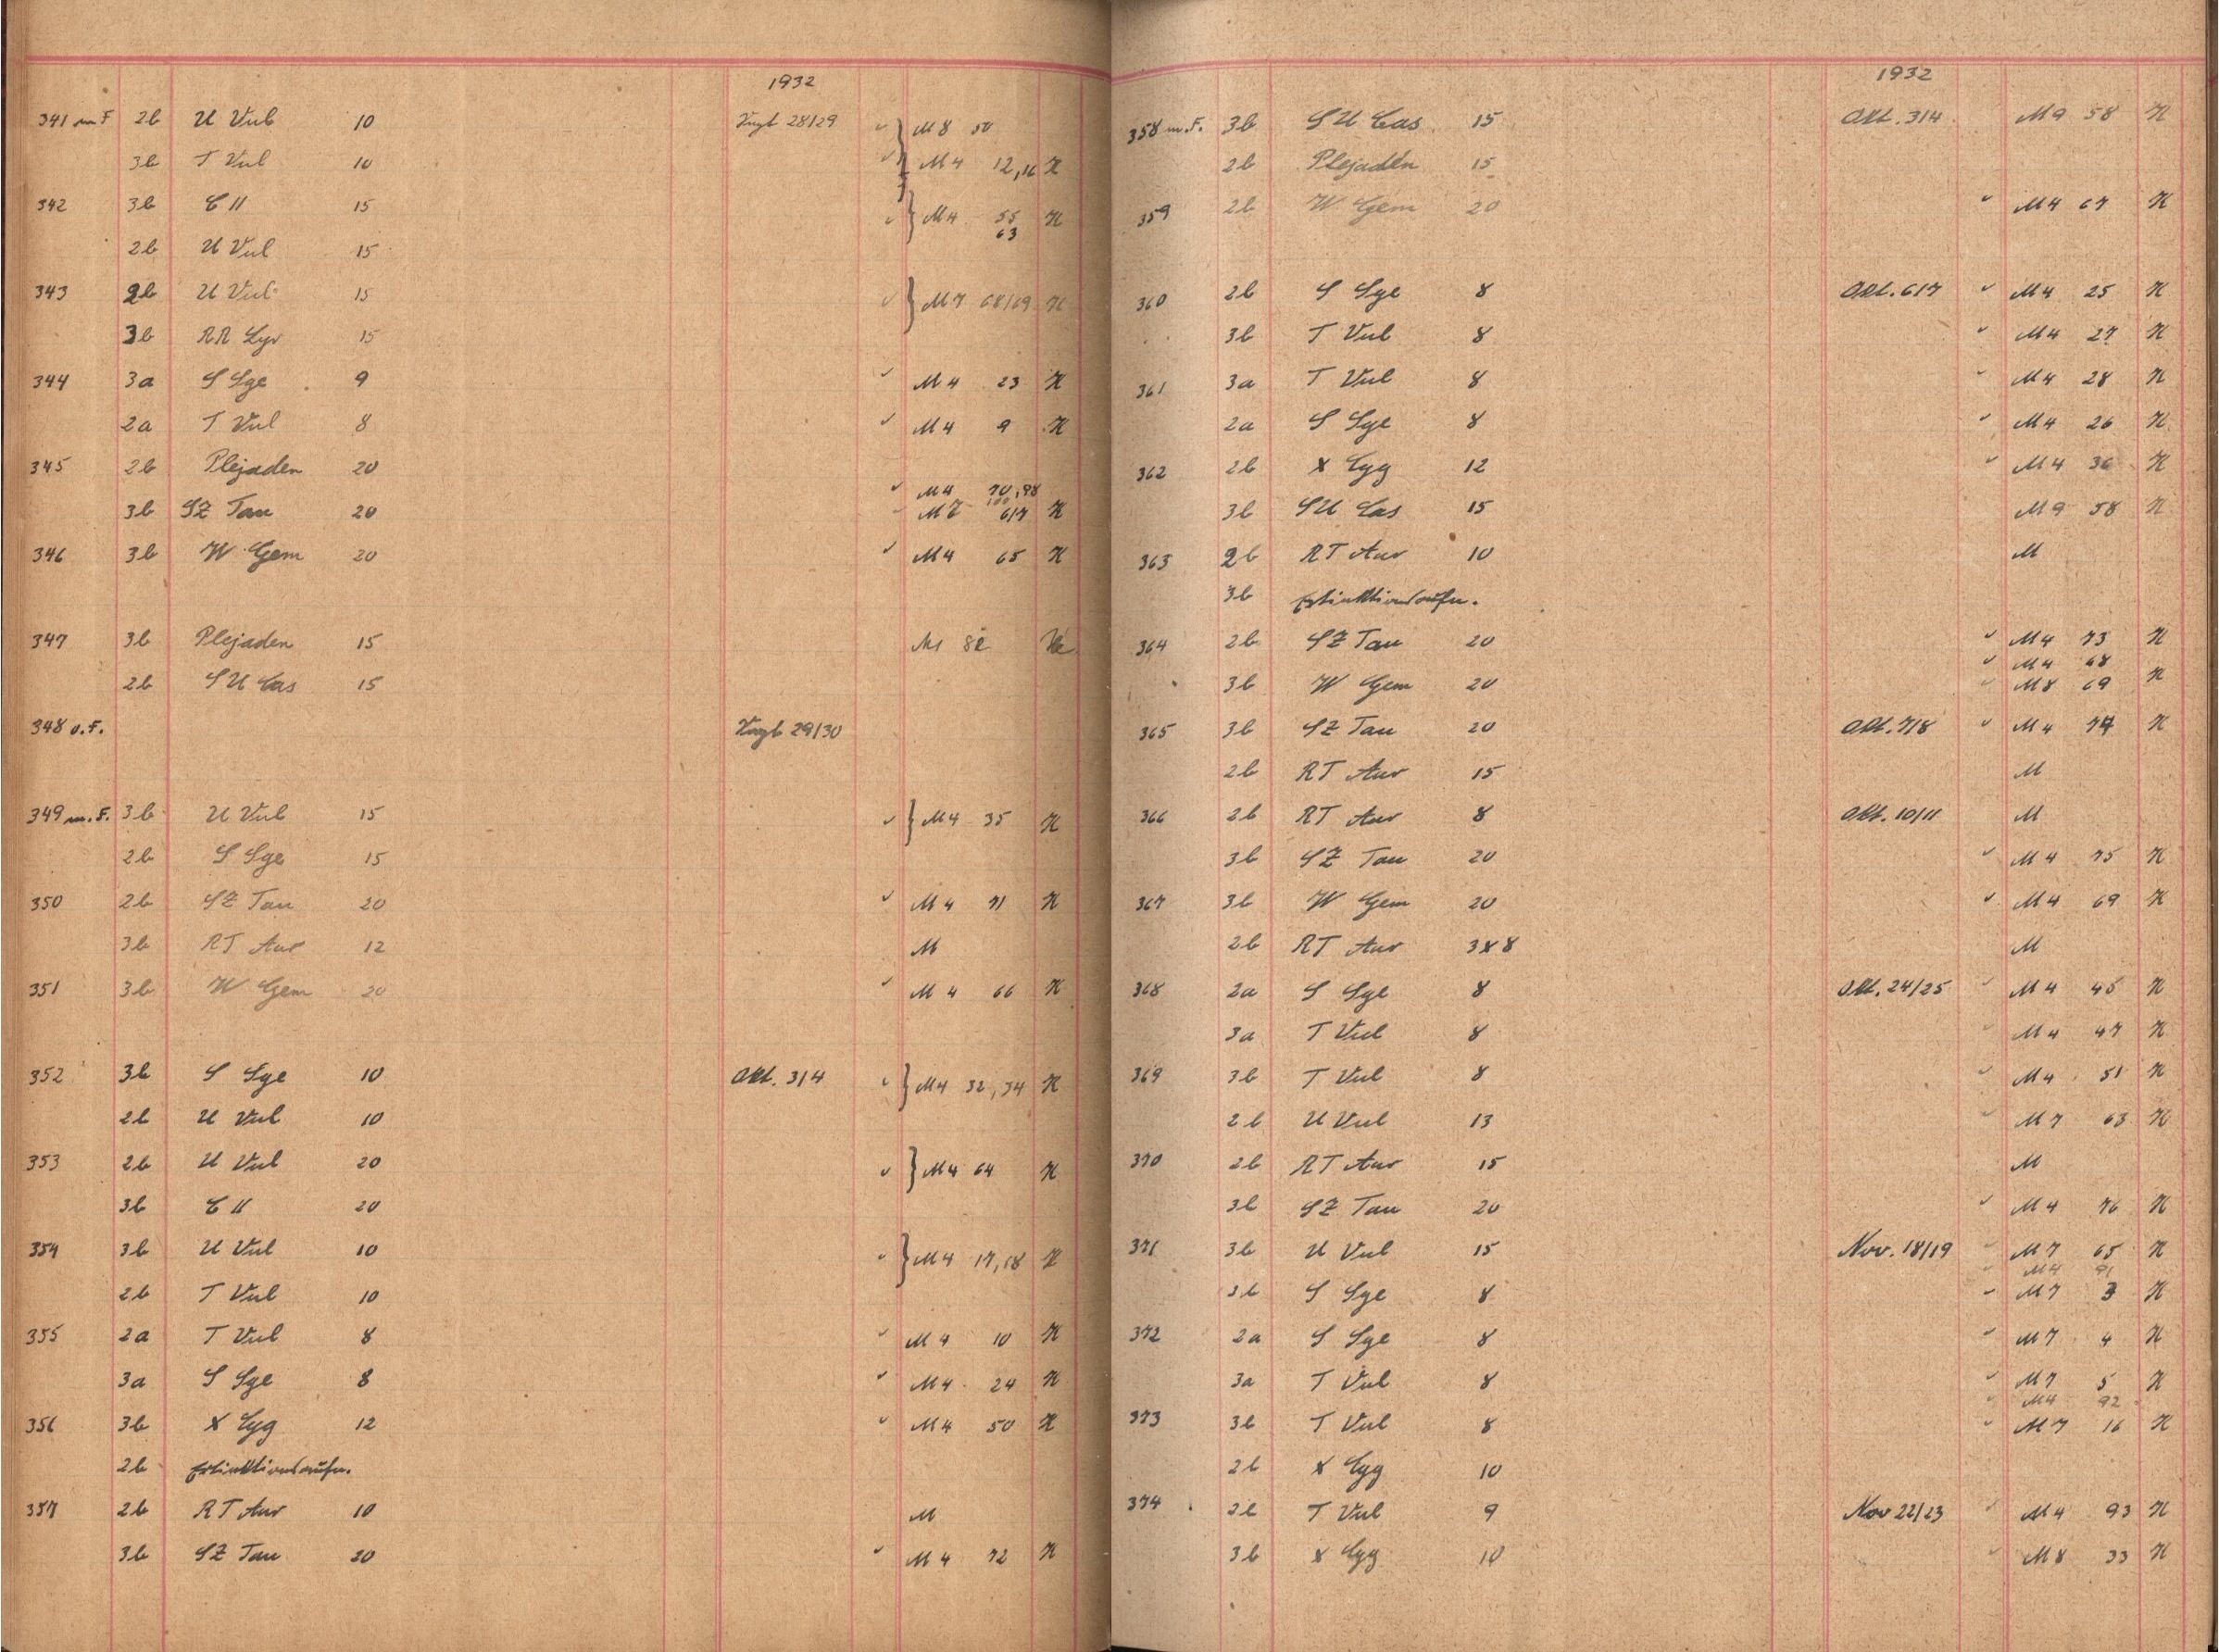 1932
341 m F 2b U Vul 10 28/29 M8 50
3b T Vul 10 M4 12,16 H
342 3b 15 M4 55 H
63
2b U Vul 15
343 2b U Vul 15 M7 68/69 H
3b RR Lyr 15
344 3a S Sge 9 M4 23 H
2a T Vul 8 M4 9 H
345 2b Plejaden 20
M4 70,98
100
3b SZ Tau 20 M7 6/7 H
346 3b W Gem 20 M4 65 H
347 3b Plejaden 15
2b SU Cas 15
348 o.F. 29/30
349 m.F. 3b U Vul 15 M4 35 H
2b S Sge 15
350 2b SZ Tau 20 M4 71 H
3b RT Aur 12 M
351 3b W Gem 20 M4 66 H
352 3b S Sge 10 Okt. 3/4 M4 32,34 H
2b U Vul 10
353 2b U Vul 20 M4 64 H
3b 20
354 3b U Vul 10 M4 17,18 H
2b T Vul 10
355 2a T Vul 8 M4 10 H
3a S Sge 8 M4 24 H
356 3b X Cyg 12 M4 50 H
2b Extinktionsaufn.
357 2b RT Aur 10 M
3b SZ Tau 20 M4 72 H
1932
358 m.F. 3b SU Cas 15 Okt. 3/4 M9 58 H
2b Plejaden 15
359 2b W Gem 20 M4 67 H
360 2b S Sge 8 Okt. 6/7 M4 25 H
3b T Vul 8 M4 27 H
361 3a T Vul 8 M4 28 H
2a S Sge 8 M4 26 H
362 2b X Cyg 12 M4 36 H
3b SU Cas 15 M9 58 H
363 2b RT Aur 10 M
3b Extinktionsaufn.
364 2b SZ Tau 20 M4 73 H
M4 68
3b W Gem 20 M8 69 H
365 3b SZ Tau 20 Okt. 7/8 M4 74 H
2b RT Aur 15 M
366 2b RT Aur 8 Okt. 10/11 M
3b SZ Tau 20 M4 75 H
367 3b W Gem 20 M4 69 H
2b RT Aur 3x8 M
368 2a S Sge 8 Okt. 24/25 M4 45 H
3a T Vul 8 M4 47 H
369 3b T Vul 8 M4 51 H
2b U Vul 13 M7 63 H
370 2b RT Aur 15 M
3b SZ Tau 20 M4 76 H
371 3b U Vul 15 Nov. 18/19 M7 65 H
M4 91
2b S Sge 8 M7 3 H
372 2a S Sge 8 M7 4 H
3a T Vul 8 M7 5 H
M4 92
373 3b T Vul 8 M7 16 H
2b X Cyg 10
374 2b T Vul 9 Nov 22/23 M4 93 H
3b X Cyg 10 M8 33 H